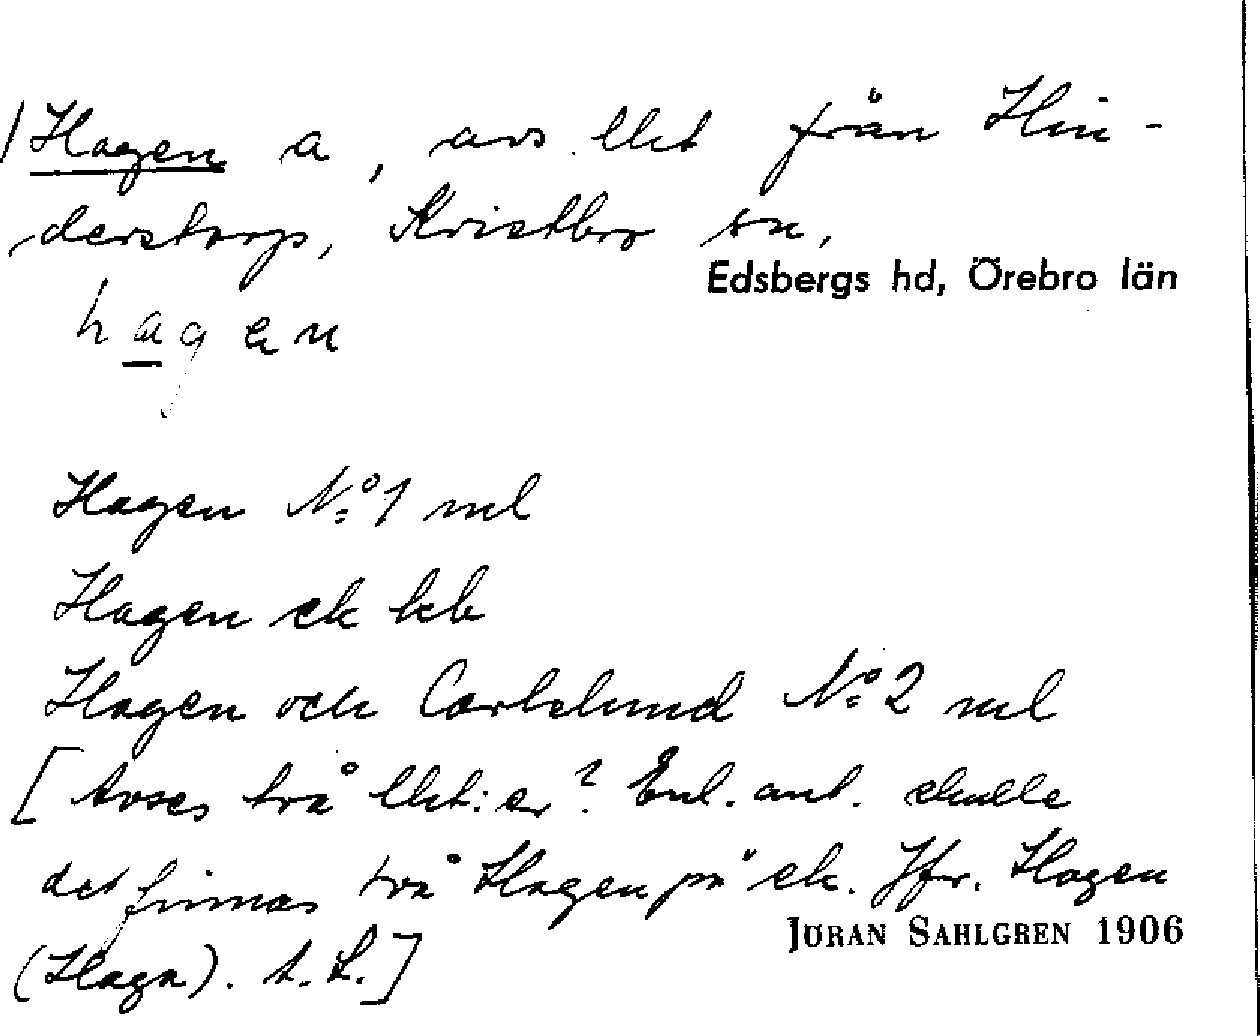 Hagen a, avs. llht från Hin-
derstorp, Kvistbro sn,
Edsbergs hd, Örebro län
hagen
Hagen No 1 ml
Hagen ek
Hagen och Carlslund No 2 ml
[Avses två llht:er? Enl. ant. skulle
det finnas två Hagen på ek. Jfr. Hagen
JÖRAN SAHLGREN 1906
(Haga).